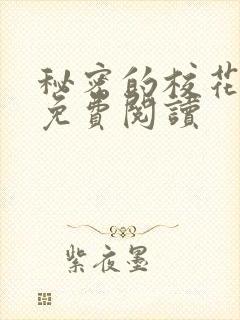 秘密的校花
免費閱讀
紫夜墨